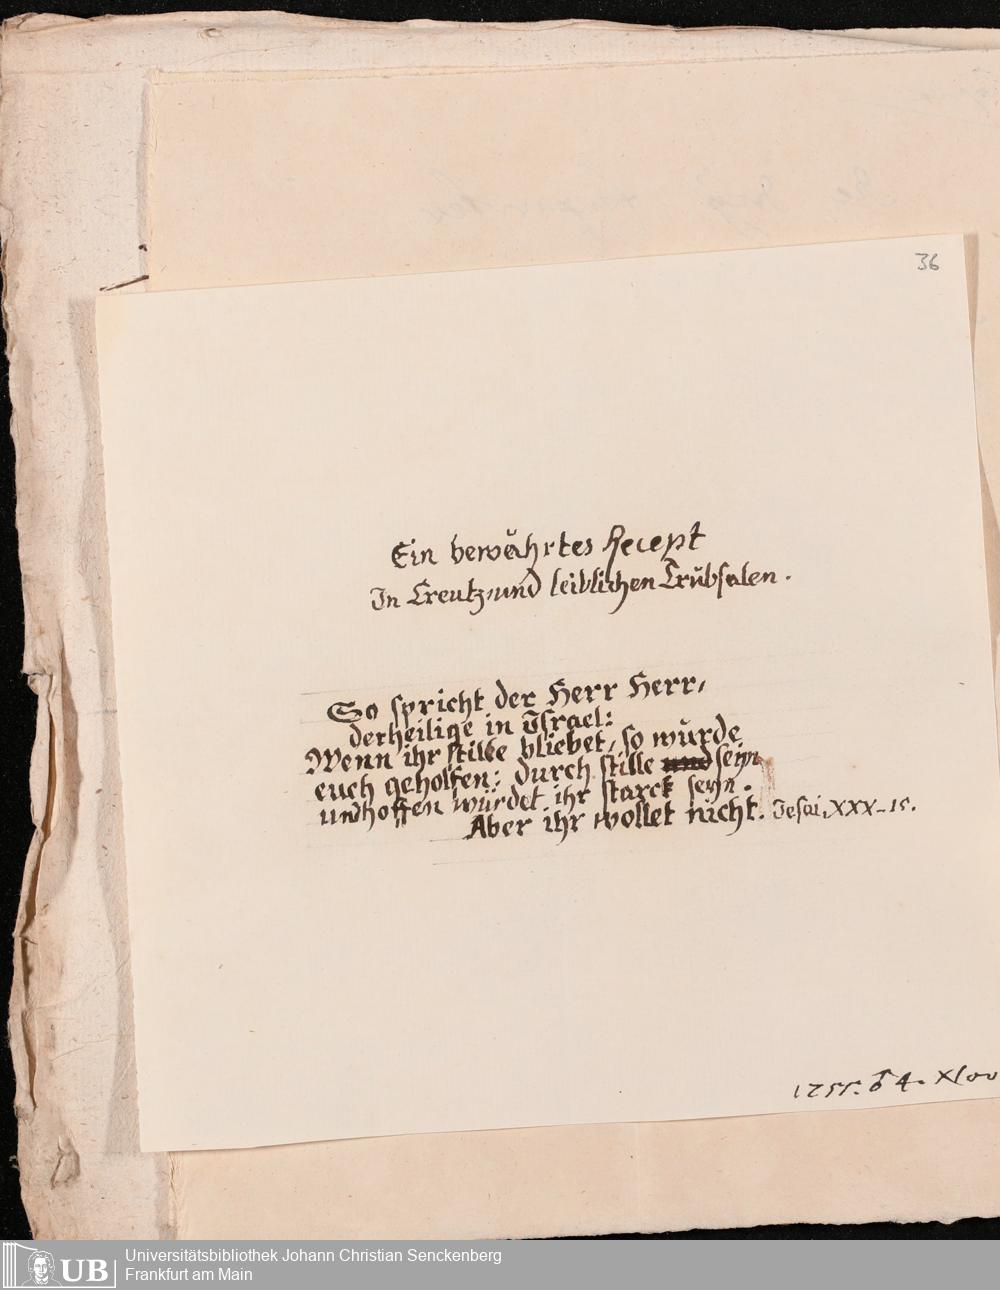 36
Ein bewährtes Recept
In Creutz, und leiblichen Trübsalen.
So spricht der Herr Herr,
derheilige in Israel:
Wenn ihr stille bliebet, so würde
euch geholfen; durch stille und seyn
undhoffen würdet ihr starck seyn.
Aber ihr wollet nicht. Jesai, XXX-15.
1755. ♄ 4.
Universitätsbibliothek Johann Christian Senckenberg
Frankfurt am Main
UB